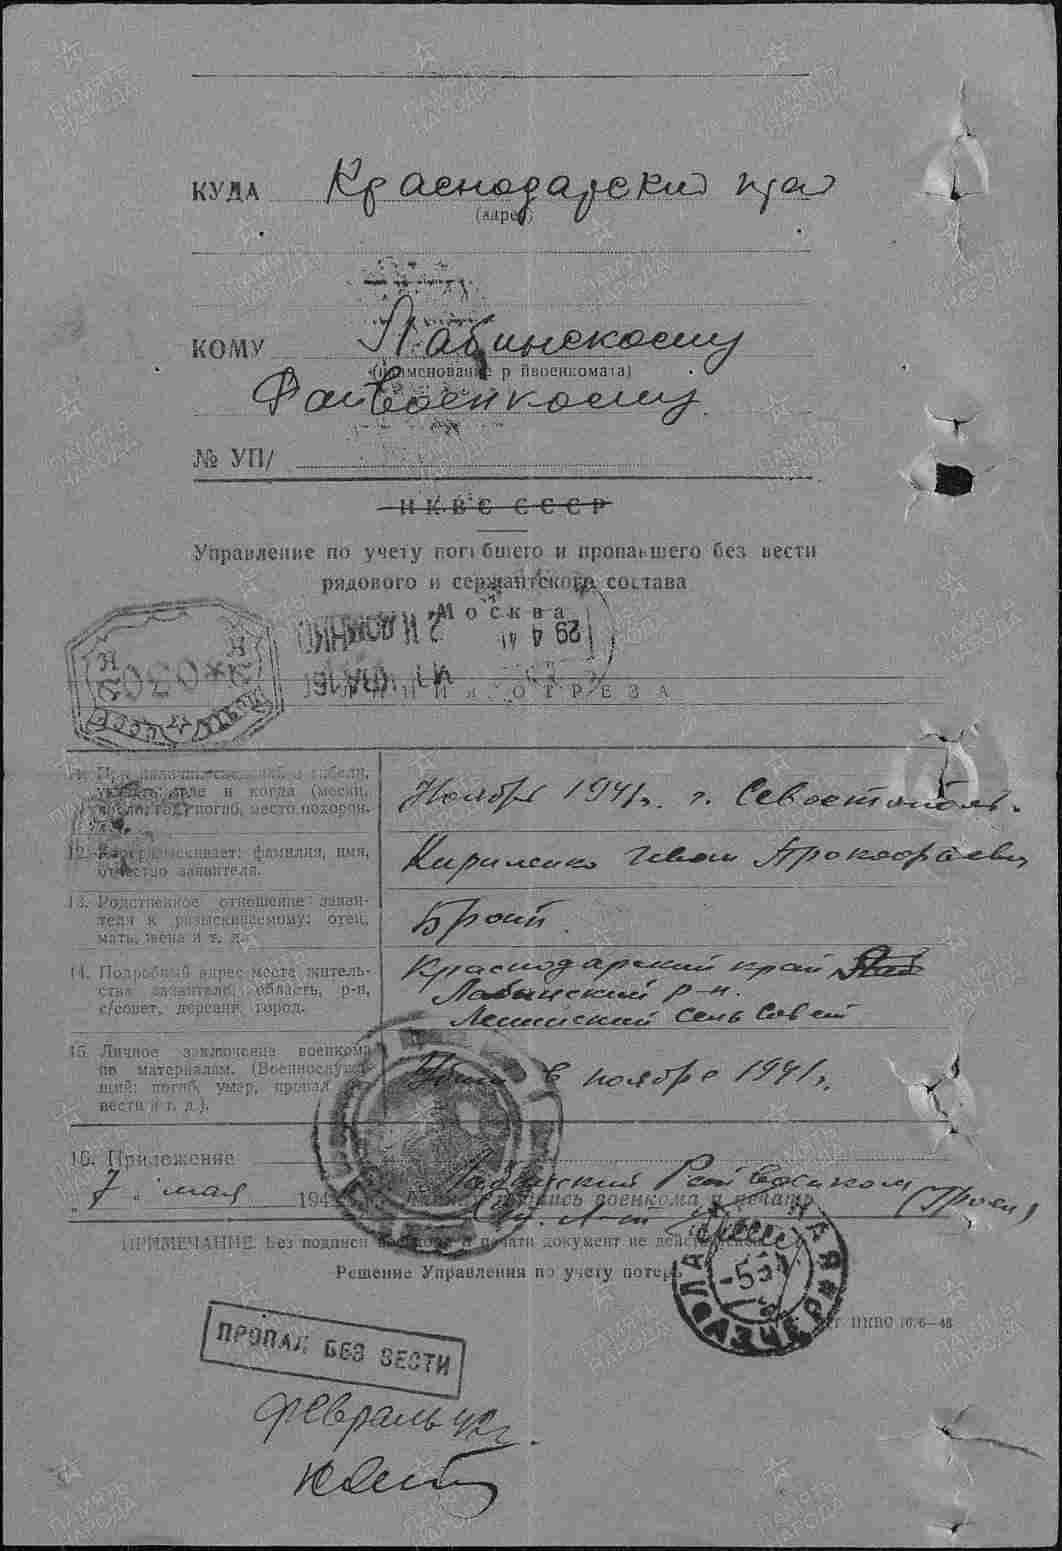 КУДА Краснодарский край
(адрес)
КОМУ Лабинскому
(наименование райвоенкомата)
Райвоенкому
№ УП/
НКВС СССР
Управление по учету погибшего и пропавшего без вести
рядового и сержантского состава
Москва
29 4
ЛИНИЯ ОТРЕЗА
11. При наличии сведений о гибели,
указать: где и когда (месяц,
число, год) погиб, место похорон.
Ноябрь 1941г. г. Севостополь.
12. Кто разыскивает: фамилия, имя,
отчество заявителя.
Кириленко Иван Прокофьевич
13. Родственное отношение заяви-
теля к разыскиваемому: отец,
мать, жена и т. д.
Брат.
14. Подробный адрес места житель-
ства заявителя: область, р-н,
с/совет, деревня, город.
Краснодарский край
Лабинский р-н.
Ленинский сель Совет
15. Личное заключение военкома
по материалам. (Военнослужа-
щий: погиб, умер, пропал без
вести и т. д.).
в ноябре 1941г.
16. Приложение
Лабинский Райвоенком
„7" мая 194
подпись военкома и печать
ПРИМЕЧАНИЕ. Без подписи военкома и печати документ не действителен
Решение Управления по учету потерь
ПРОПАЛ БЕЗ ВЕСТИ
февраль 42г.